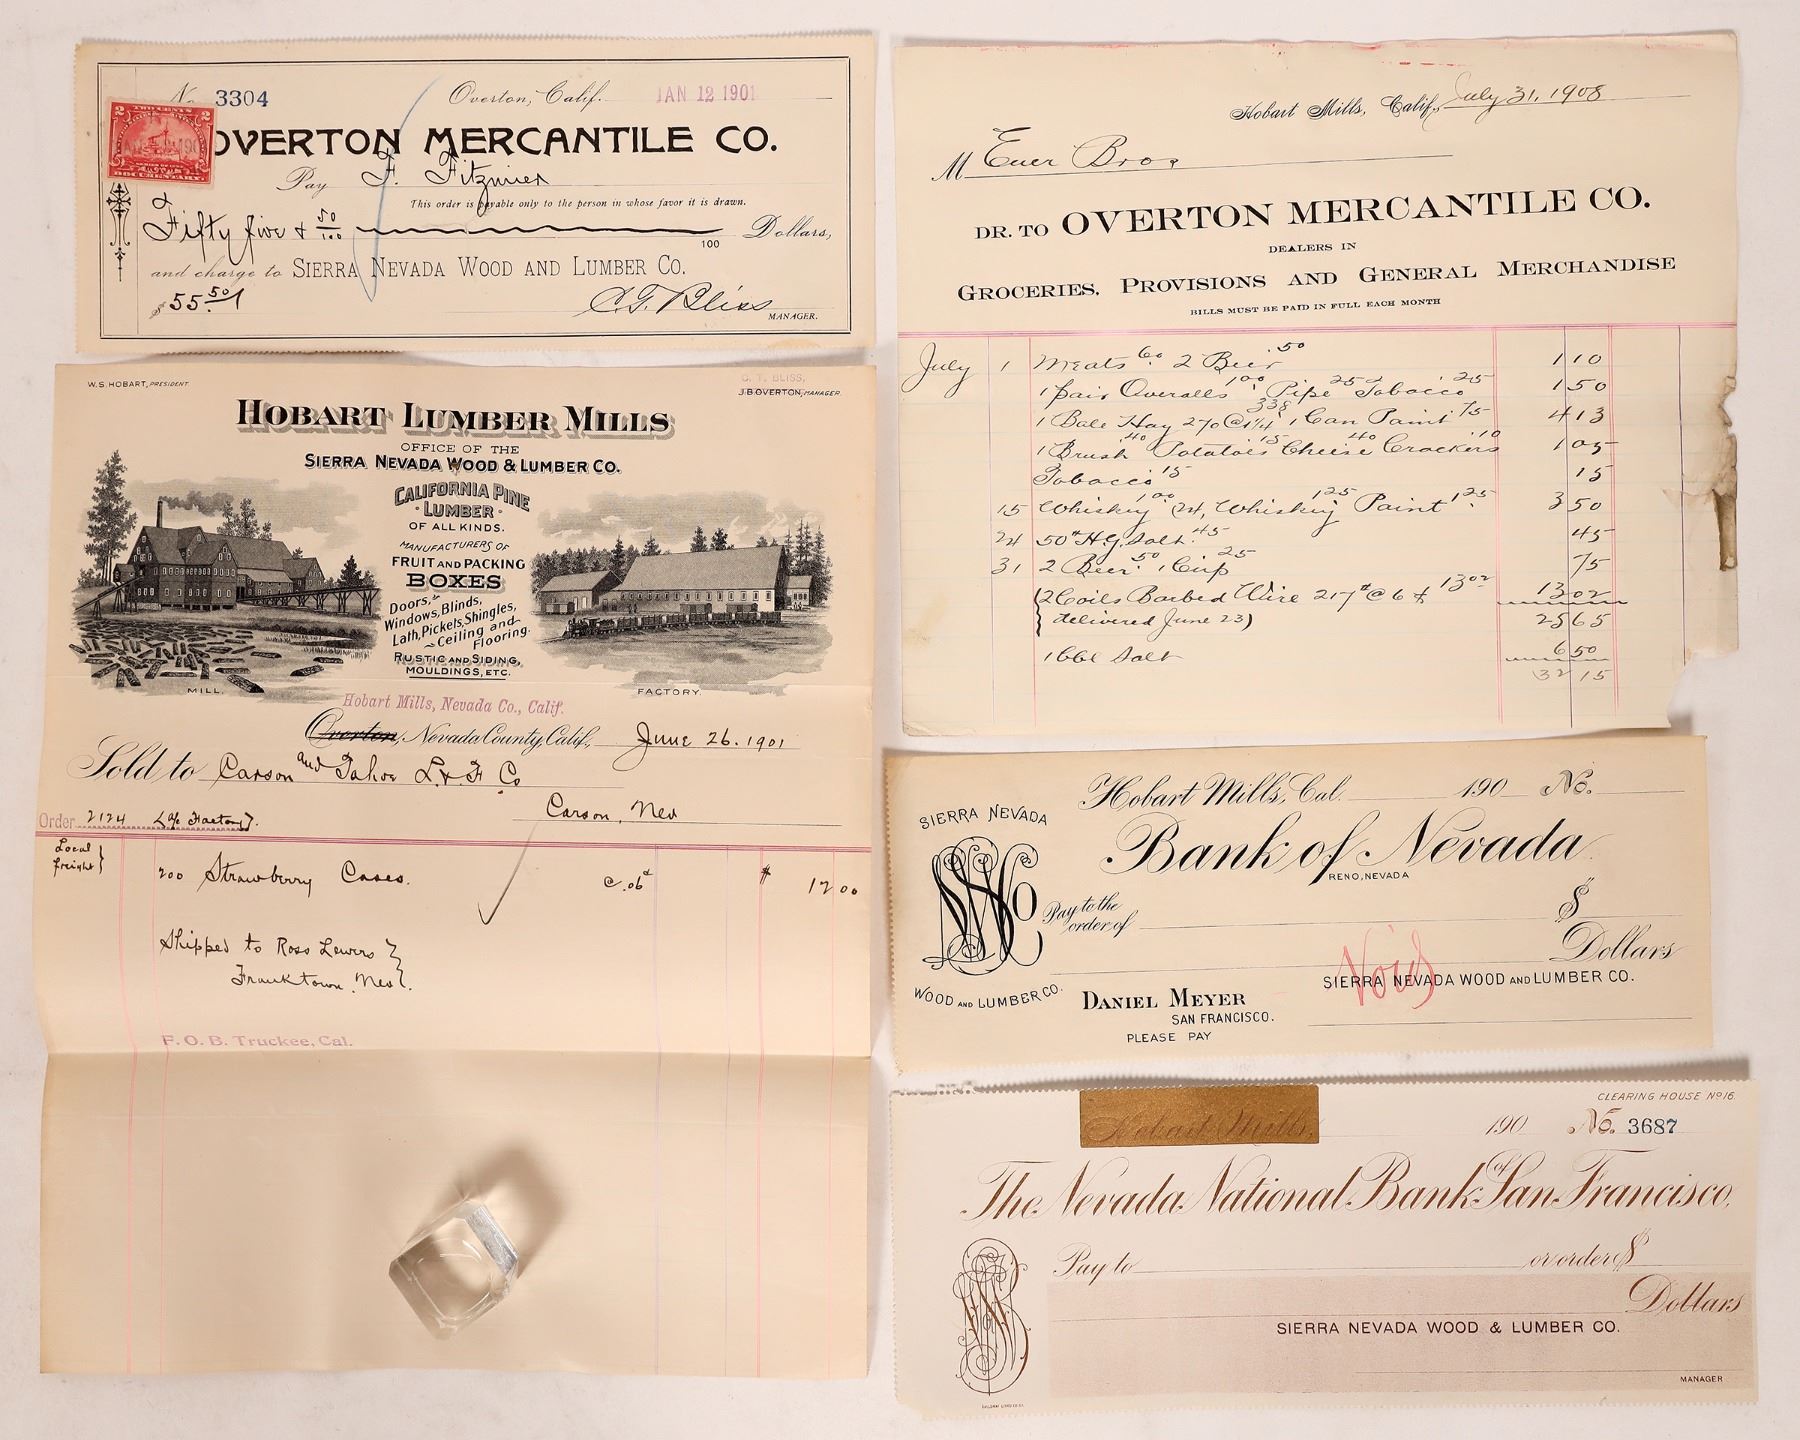 No. 3304 Overton, Calif. JAN 12 1901
TWO CENTS
2 2
DOCUMENTARY
OVERTON MERCANTILE CO.
Pay F. Fitzmier
This order is payable only to the person in whose favor it is drawn.
Fifty five & 50/100 100 Dollars,
and charge to SIERRA NEVADA WOOD AND LUMBER CO.
$55.50/ C.T. Bliss
MANAGER.
W.S. HOBART, PRESIDENT
C. T. BLISS,
J.B. OVERTON, MANAGER.
HOBART LUMBER MILLS
OFFICE OF THE
SIERRA NEVADA WOOD & LUMBER CO.
CALIFORNIA PINE
LUMBER
OF ALL KINDS.
MANUFACTURERS OF
FRUIT AND PACKING
BOXES
Doors,
Windows, Blinds,
Lath, Pickets, Shingles,
Ceiling and
Flooring.
RUSTIC AND SIDING,
MOULDINGS, ETC.
MILL.
FACTORY.
Hobart Mills, Nevada Co., Calif.
Overton, Nevada County, Calif., June 26. 1901
Sold to Carson and Tahoe L & F Co
Carson, Nev
Order 2124 L a/c Factory.
Local
freight } 200 Strawberry Cases. @ .06¢ $ 12 00
Shipped to Ross Lewers }
Franktown, Nev.
F. O. B. Truckee, Cal.
Hobart Mills, Calif., July 31, 1908
M Euer Bros
DR. TO OVERTON MERCANTILE CO.
DEALERS IN
GROCERIES, PROVISIONS AND GENERAL MERCHANDISE
BILLS MUST BE PAID IN FULL EACH MONTH
July 1 Meats 60 2 Beer 50 1 10
1 pair Overalls 1.00 Pipe 25 Tobacco 25 1 50
1 Bale Hay 270 @ 1 1/4 338 1 Can Paint 75 4 13
1 Brush 40 Potatoes 15 Cheese 40 Crackers 10 1 05
Tobacco 15 15
15 Whiskey 1.00 24, Whiskey 1.25 Paint 1.25 3 50
24 50# H.G. Salt .45 45
31 2 Beer 50 1 Cup 25 75
(2 Coils Barbed Wire 217# @ 6¢ 13.02 13 02
delivered June 23) 25 65
1 bbl Salt 6 50
32 15
Hobart Mills, Cal. 190 No.
SIERRA NEVADA
Bank of Nevada
RENO, NEVADA
Pay to the
order of $
Dollars
WOOD AND LUMBER CO.
Void
SIERRA NEVADA WOOD AND LUMBER CO.
DANIEL MEYER
SAN FRANCISCO.
PLEASE PAY
CLEARING HOUSE No 16.
Hobart Mills, 190 No. 3687
The Nevada National Bank of San Francisco,
Pay to or order $
Dollars
SIERRA NEVADA WOOD & LUMBER CO.
MANAGER